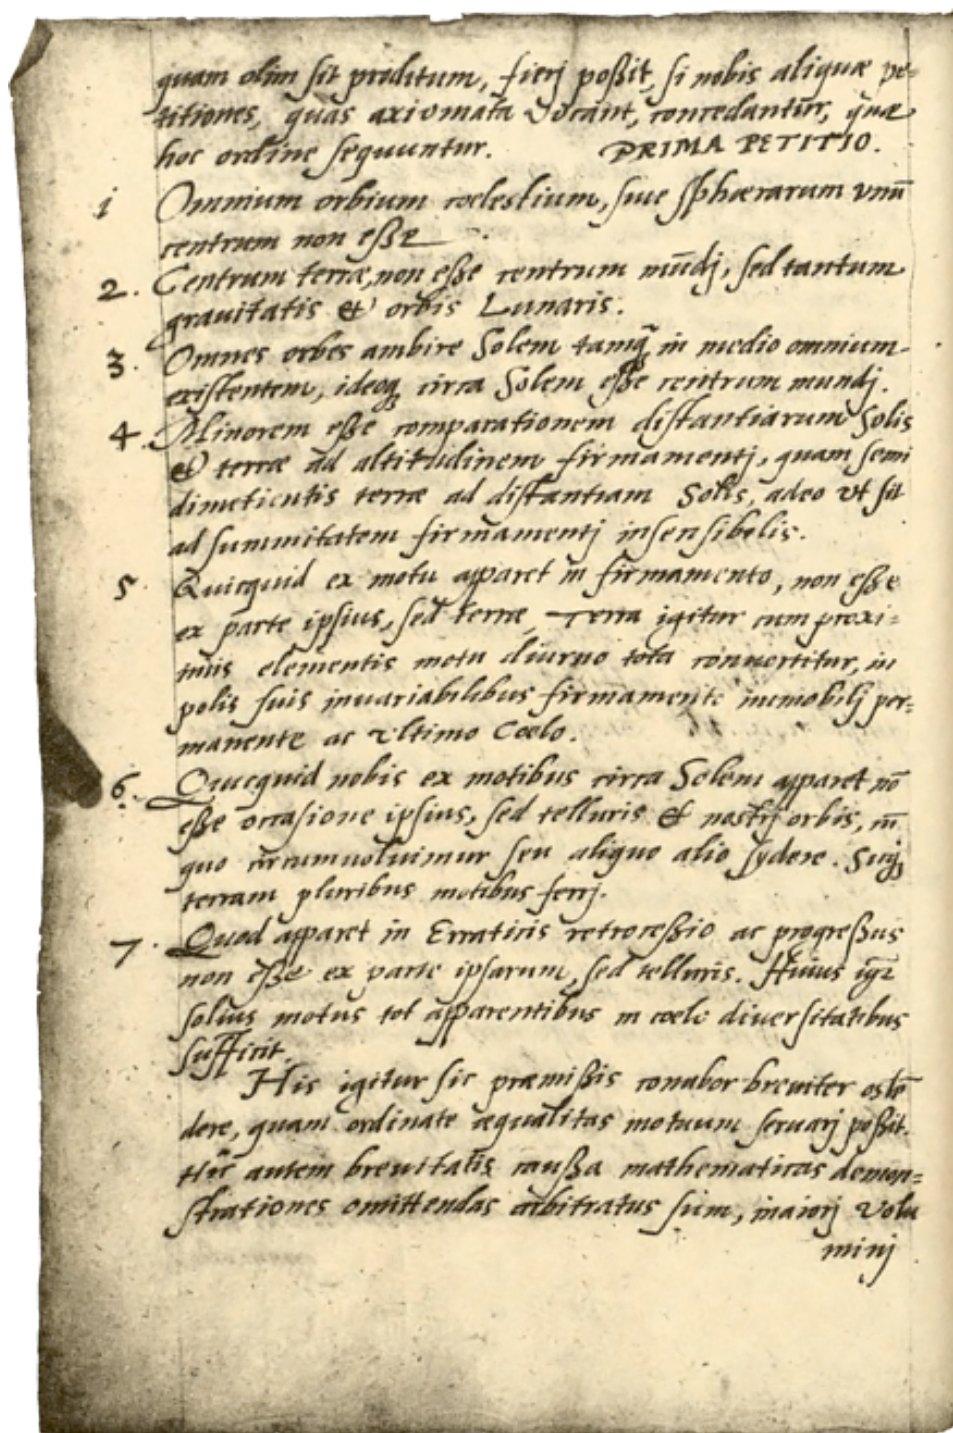 quam olim sit proditum, fierj poßit, si nobis aliquæ pe=
titiones, quas axiomata vocant, concedantur, quæ
hoc ordine sequuntur. PRIMA PETITIO.
1 Omnium orbium cœlestium, siue sphærarum vnū
centrum non eße
2. Centrum terræ, non eße centrum mūdj, sed tantum
grauitatis et orbis Lunaris.
3. Omnes orbes ambire Solem tamq̃ in medio omnium
existentem, ideoq̃ circa Solem eße centrum mundj.
4. Minorem eße comparationem distantiarum Solis
et terræ ad altitudinem firmamentj, quam semi
dimeticutis terræ ad distantiam Solis, adeo vt sit
ad summitatem firmamentj insensibelis.
5. Quicquid ex motu apparet in firmamento, non eße
ex parte ipsius, sed terræ, Terra igitur cum proxi=
mis elementis motu diurno tota conuertitur, in
polis suis inuariabilibus firmamento immobilj per=
manente ac vltimo Cœlo.
6. Quicquid nobis ex motibus circa Solem apparet nō
eße occasione ipsius, sed telluris et nostrj orbis, cū
quo circumuoluimur seu aliquo alio sydere. Sicq̃
terram pluribus motibus ferrj.
7. Quod apparet in Erraticis retroceßio ac progreßus
non eße ex parte ipsarum, sed telluris. Huius igr̄
solius motus tot apparentibus in cœlo diuersitatibus
sufficit.
His igitur sic præmißis conabor breuiter ostē
dere, quam ordinate æqualitas motuum seruarj poßit.
Hic autem breuitatis caußa mathematicas demon=
strationes omittendas arbitratus sum, maiorj volu
minj